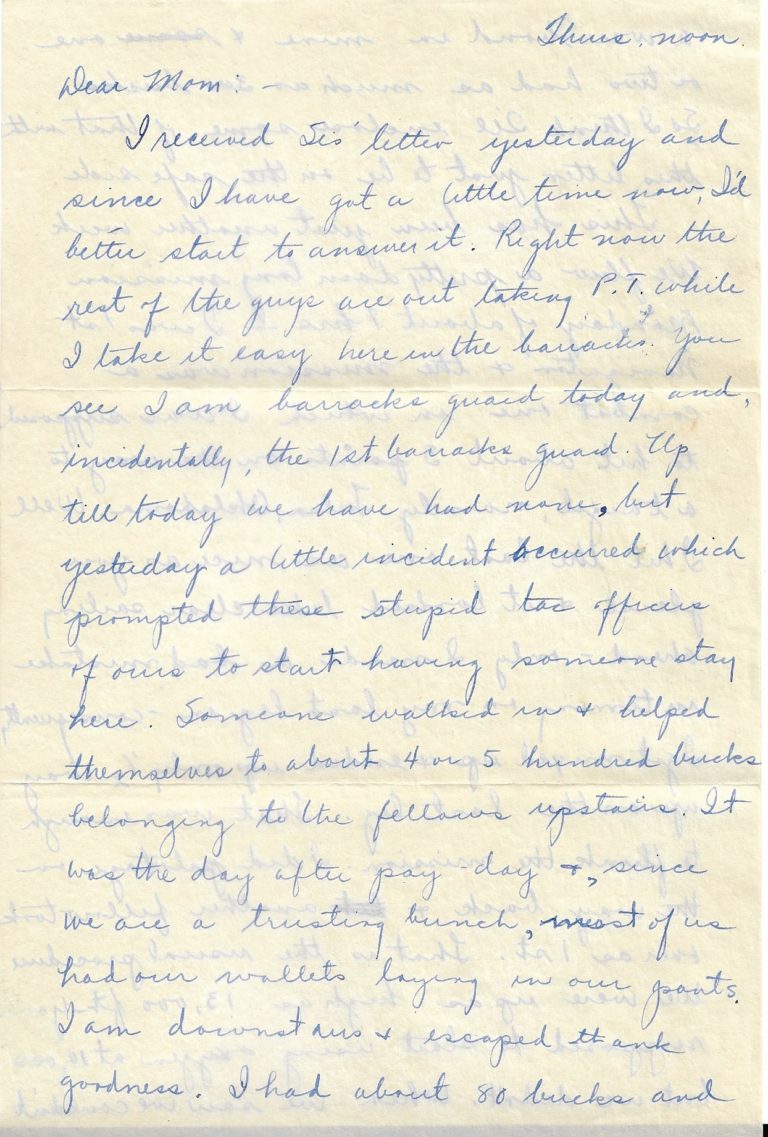 Thurs. noon.
Dear Mom: -
I received Sis' letter yesterday and
since I have got a little time now, I'd
better start to answer it. Right now the
rest of the guys are out taking P.T. while
I take it easy here in the barracks. You
see I am barracks guard today and,
incidentally, the 1st barracks guard. Up
till today we have had none, but
yesterday a little incident occurred which
prompted these stupid tac officers
of ours to start having someone stay
here. Someone walked in & helped
themselves to about 4 or 5 hundred bucks
belonging to the fellows upstairs. It
was the day after pay-day &, since
we are a trusting bunch, most of us
had our wallets laying in our pants.
I am downstairs & escaped thank
goodness. I had about 80 bucks and